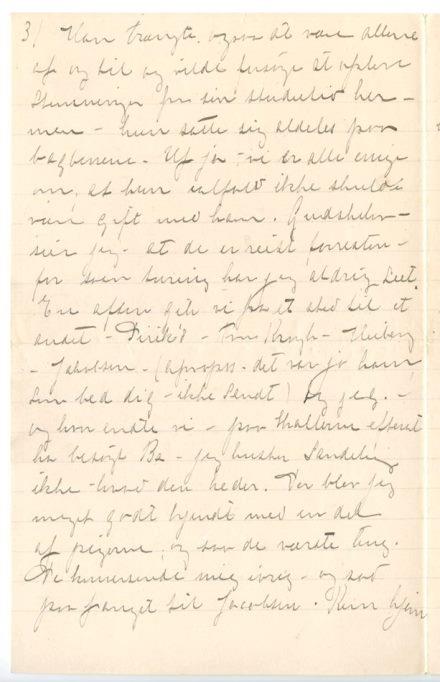 3/ Han trængte ogsaa at være allene
af og til og vilde besøge at opleve
Stemninger fra sin studietid her –
men – hun satte sig aldeles paa
bagbenene – Uf ja – vi er alle enige
om, at hun ialfald ikke skulde
være gift med ham. Gudskelov –
sier jeg – at de er reist forresten –
for svær turing har jeg aldrig seet.
En aften gik vi fra et sted til et
andet – Dirik's – Fru Krogh – Heiberg
– Jacobsen – (apropos – det var jo ham
som bed dig – ikke Sendt) og jeg. –
og hvor endte vi – paa Hallerne efterat
ha besøgt Ba – jeg husker
ikke – hvad den heder. Der blev jeg
meget godt kjendt med en del
af pigerne, og saa de værste ting.
De interesserte mig ivrig – og sad
paa fanget til Jacobsen.